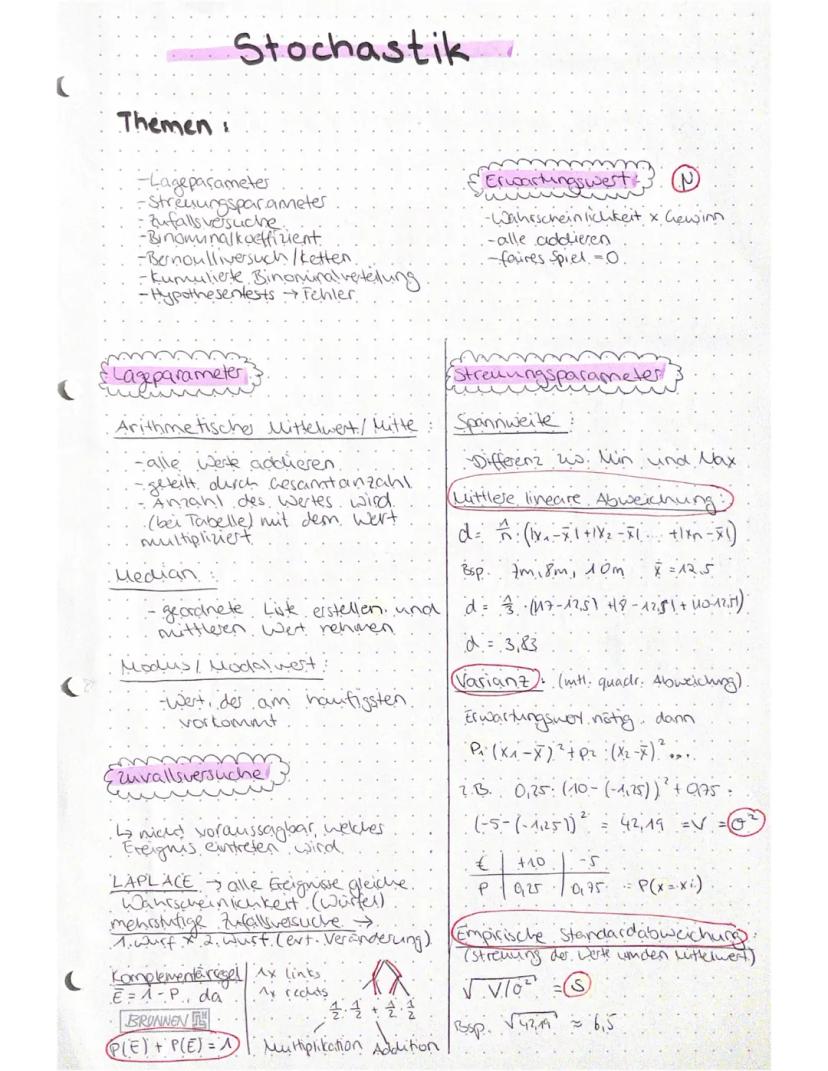 Stochastik
Themen:
-Lageparameter
-Streuungsparameter
-Zufallsversuche
-Binominalkoeffizient
-Bernoulliversuch/ketten
-Kumulierte Binominalverteilung
-Hypothesentests → Fehler
Erwartungswert μ
-Wahrscheinlichkeit x Gewinn
-alle addieren
-faires Spiel = 0
Lageparameter
Arithmetisches Mittelwert/Mitte:
-alle Werte addieren
-geteilt durch Gesamtanzahl
-Anzahl des Wertes wird
(bei Tabelle) mit dem Wert
multipliziert
Median:
-geordnete Liste erstellen und
mittleren Wert nehmen
Modus/Modalwert:
-Wert, der am häufigsten
vorkommt
Zuvallsversuche
↳ nicht voraussagbar, welches
Ereignis eintreten wird
LAPLACE → alle Ereignisse gleiche
Wahrscheinlichkeit (Würfel)
mehrstufige Zufallsversuche →
1. Wurf x 2. Wurf (evt. Veränderung)
Komplementärregel
Ē = 1 - P, da
BRUNNEN
P(E) + P(Ē) = 1
1x links
1x rechts
1/2 · 1/2 + 1/2 · 1/2
Multiplikation Addition
Streuungsparameter
Spannweite:
-Differenz zw. Min und Max
Mittlere lineare Abweichung:
d = 1/n · (|x₁-x̄|+|x₂-x̄|... +|xn-x̄|)
Bsp. 7m, 8m, 10m x̄=12,5
d = 1/3 · (|17-12,5| +|8-12,5|+|10-12,5|)
d = 3,83
Varianz: (mitl. quadr. Abweichung)
Erwartungswert nötig, dann
P₁·(x₁-x̄)²+p₂·(x₂-x̄)²...
z.B. 0,25·(10-(-1,25))² + 0,75·
(-5-(-1,25))² = 42,19 =V =σ²
€ | +10 | -5
P | 0,25 | 0,75 = P(x=xi)
Empirische Standardabweichung:
(Streuung der Werte um den Mittelwert)
√V/σ² = S
Bsp. √42,19 ≈ 6,5